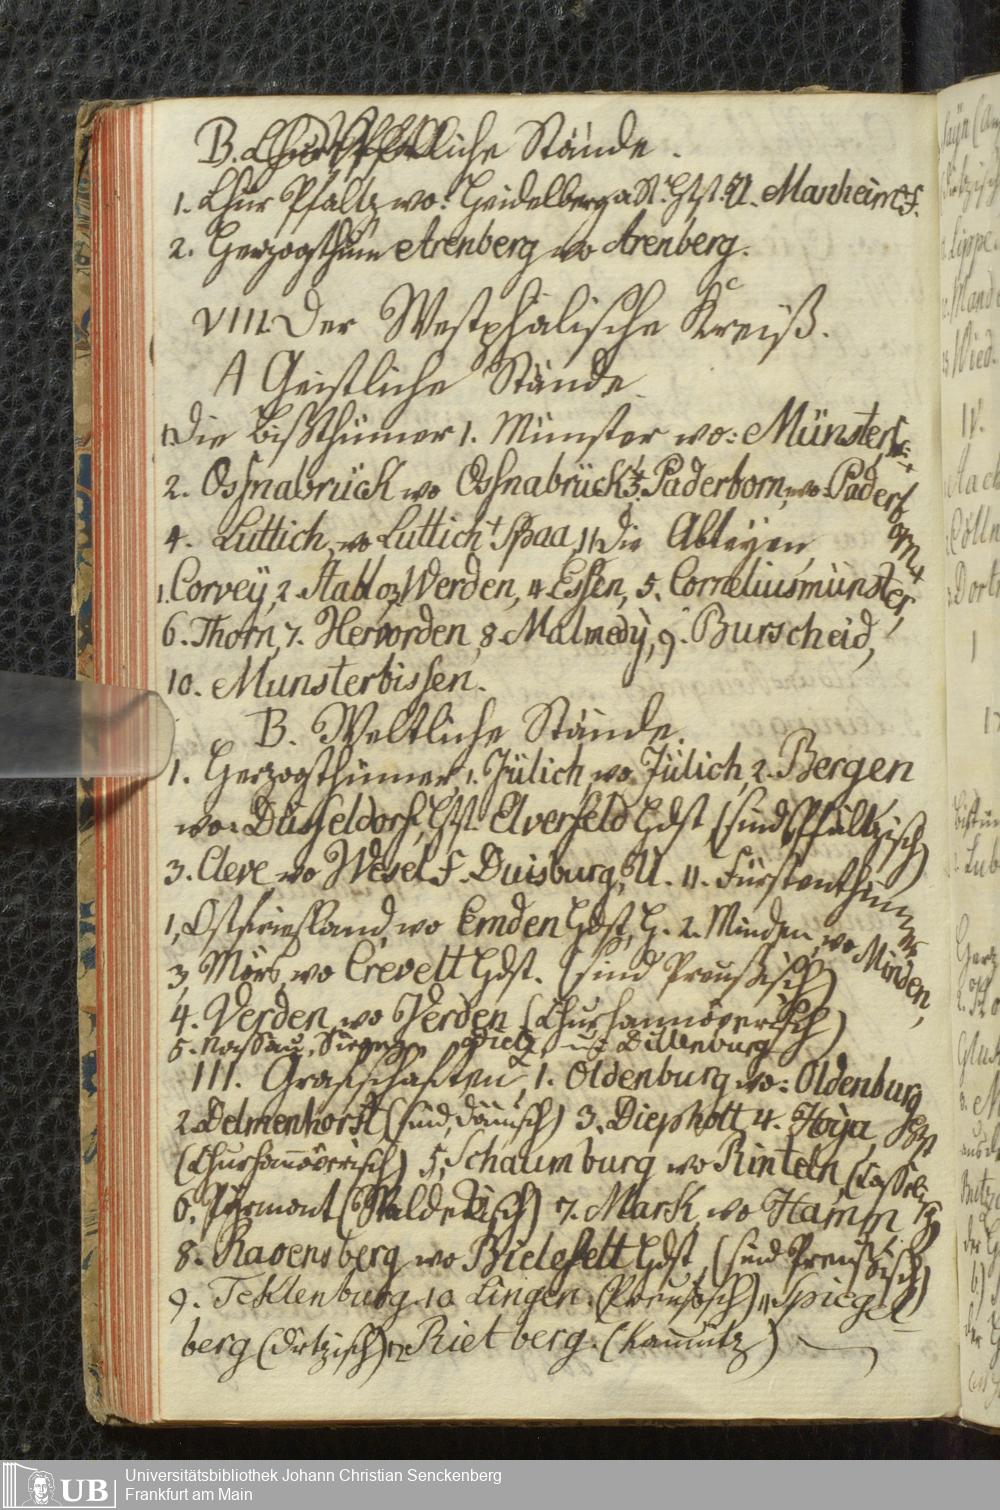 B. Churfürstliche Stände.
1. Chur Pfaltz wo: Heidelberg a St. Hst. U. Manheim F.
2. Herzogthum Arenberg wo Arenberg.
VIII. Der Westphälische Kreiß.
A Geistliche Stände
I. Die Bißthümer 1. Münster wo: Münster F.
2. Ossnabrück wo Ossnabrück 3. Paderborn, wo Paderborn,
4. Luttich, wo Luttich Spaa, II. Die Abteyen,
1. Corvey, 2. Stablo, 3. Werden, 4. Essen, 5. Corneliusmünster,
6. Thorn, 7. Hervorden, 8. Malmedy, 9. Burscheid,
10. Munsterbissen.
B. Weltliche Stände.
1. Herzogthümer, 1. Jülich, wo Jülich, 2. Bergen
wo: Düsseldorf, Hst. Elverfeld Hdst (sind Pfältzisch)
3. Cleve wo Wesel F. Duisburg, U. II. Fürstenthümer
1, Ostfriesland, wo Emden Hdst, H. 2. Minden, wo Minden,
3, Mörs, wo Crevelt Hdst. (sind Preußisch)
4. Verden, wo Verden (Churhannöverisch)
5. Nassau, Siegen Dietz und Dillenburg
III. Grafschaften, 1. Oldenburg wo: Oldenburg
2. Delmenhorst (sind, Dänisch) 3. Diepholt, 4. Hoya,
(Churhannöverisch) 5. Schaumburg wo Rinteln, (Cassel
6. Pyrmont (Waldekisch) 7. Mark, wo Hamm
8. Ravensberg wo Bielefelt Hdst, (sind Preussisch)
9. Teklenburg. 10 Lingen. (Preusisch) 11 Spiegel=
berg (Dietzisch) 12 Rietberg. (Kaunitz)
UB Universitätsbibliothek Johann Christian Senckenberg
Frankfurt am Main